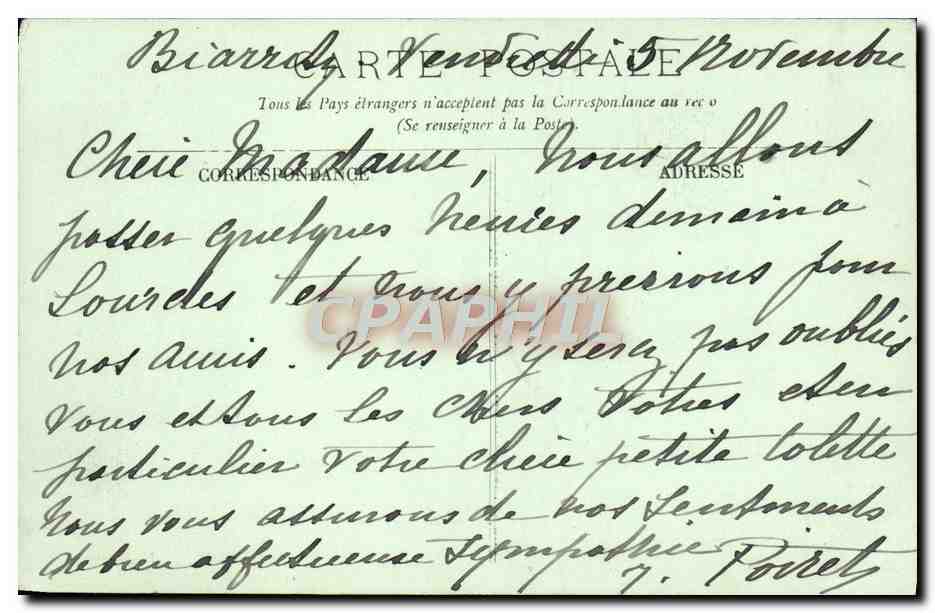 Biarritz. Vendredi 5 Novembre
CARTE POSTALE
Tous les Pays étrangers n'acceptent pas la Correspondance au recto
(Se renseigner à la Poste).
Chère Madame, Nous allons
CORRESPONDANCE ADRESSE
passer quelques heures demain à
Lourdes et nous y prierons pour
CPAPHIL
nos amis. Vous n'y serez pas oubliés
vous et tous les chers Vôtres et en
particulier votre chère petite Colette
Nous vous assurons de nos sentiments
de bien affectueuse sympathie
Poiret